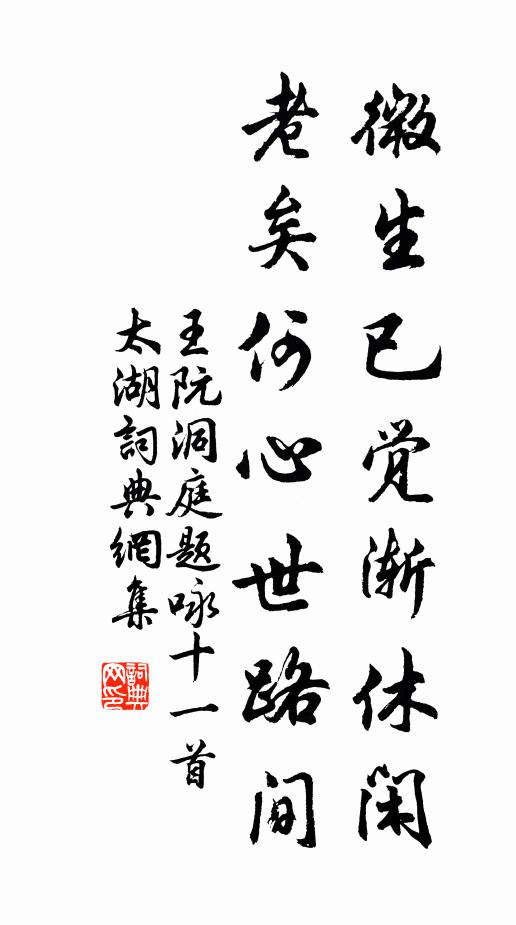 微生已觉渐休閑
老矣何心世路间
王阮洞庭题咏十一首
太湖詞典網集
詞典网印